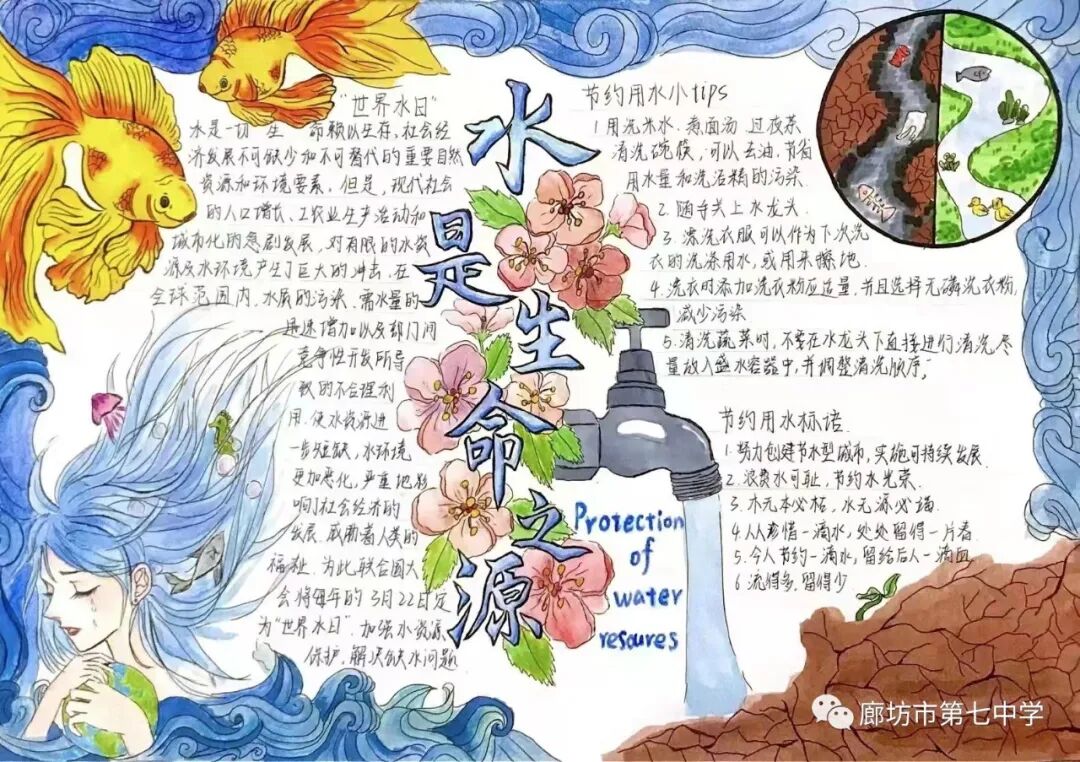 水是生命之源
"世界水日"
水是一切生命赖以生存,社会经
济发展不可缺少和不可替代的重要自然
资源和环境要素。但是,现代社会
的人口增长、工农业生产活动和
城市化的急剧发展,对有限的水资
源及水环境产生了巨大的冲击。在
全球范围内,水质的污染、需水量的
迅速增加以及部门间
竞争性开发所导
致的不合理利
用,使水资源进
一步短缺,水环境
更加恶化,严重地影
响了社会经济的
发展,威胁着人类的
福祉。为此联合国大
会将每年的3月22日定
为"世界水日",加强水资源
保护,解决缺水问题
节约用水小tips
1.用洗米水、煮面汤、过夜茶
清洗碗筷,可以去油,节省
用水量和洗洁精的污染.
2.随手关上水龙头.
3.漂洗衣服可以作为下次洗
衣的洗涤用水,或用来擦地.
4.洗衣时添加洗衣粉应适量,并且选择无磷洗衣粉,
减少污染
5.清洗蔬菜时,不要在水龙头下直接进行清洗,尽
量放入盛水容器中,并调整清洗顺序;
节约用水标语.
1.努力创建节水型城市,实施可持续发展.
2.浪费水可耻,节约水光荣.
3.木无本必枯,水无源必竭.
4.人人珍惜一滴水,处处留得一片春
5.今人节约一滴水,留给后人一滴血
6.流得多,留得少
Protection
of
water
resoures
廊坊市第七中学